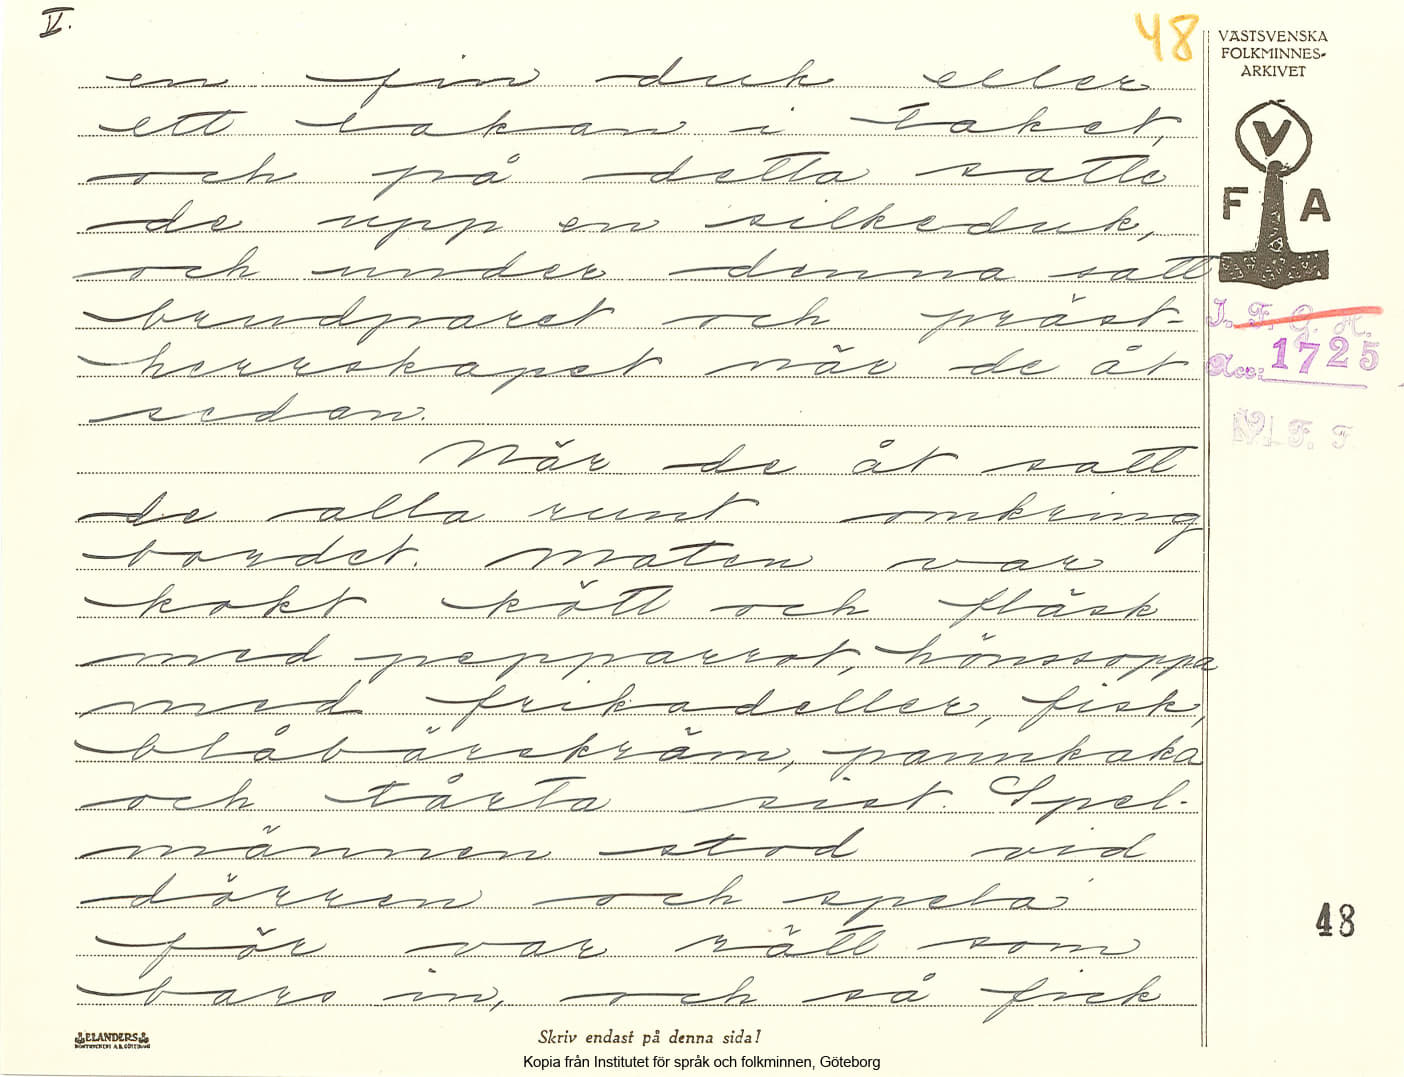 V.
48
VÄSTSVENSKA
FOLKMINNES-
ARKIVET
V
F A
I. F. G. H.
Acc: 1725
V. F. F.
en fin duk eller
ett lakan i taket,
och på detta satte
de upp en silkeduk,
och under denna satt
brudparet och präst-
herrskapet när de åt
sedan.
När de åt satt
de alla runt omkring
bordet. Maten var
kokt kött och fläsk
med pepparrot, hönssoppa
med frikadeller, fisk,
blåbärskräm, pannkaka
och tårta sist. Spel-
männen stod vid
dörren och spela'
för var rätt som
bars in, och så fick
48
ELANDERS
BOKTRYCKERI A.B. GÖTEBORG
Skriv endast på denna sida!
Kopia från Institutet för språk och folkminnen, Göteborg